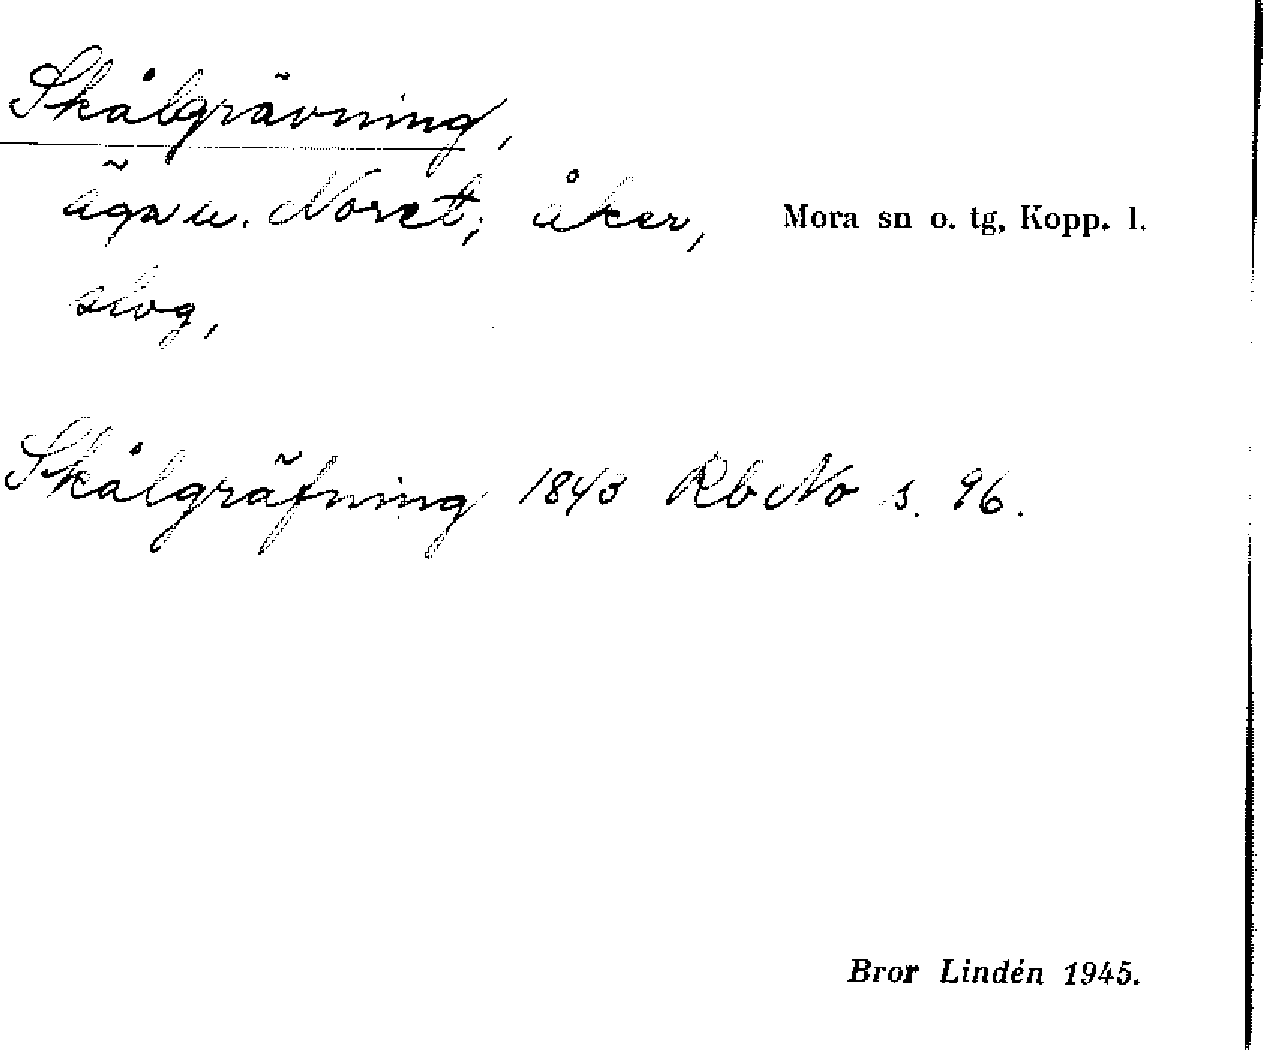 Skålgrävning,
äga u. Noret; åker, Mora sn o. tg, Kopp. l.
slog,
Skålgräfning 1843 Rb No s. 96.
Bror Lindén 1945.